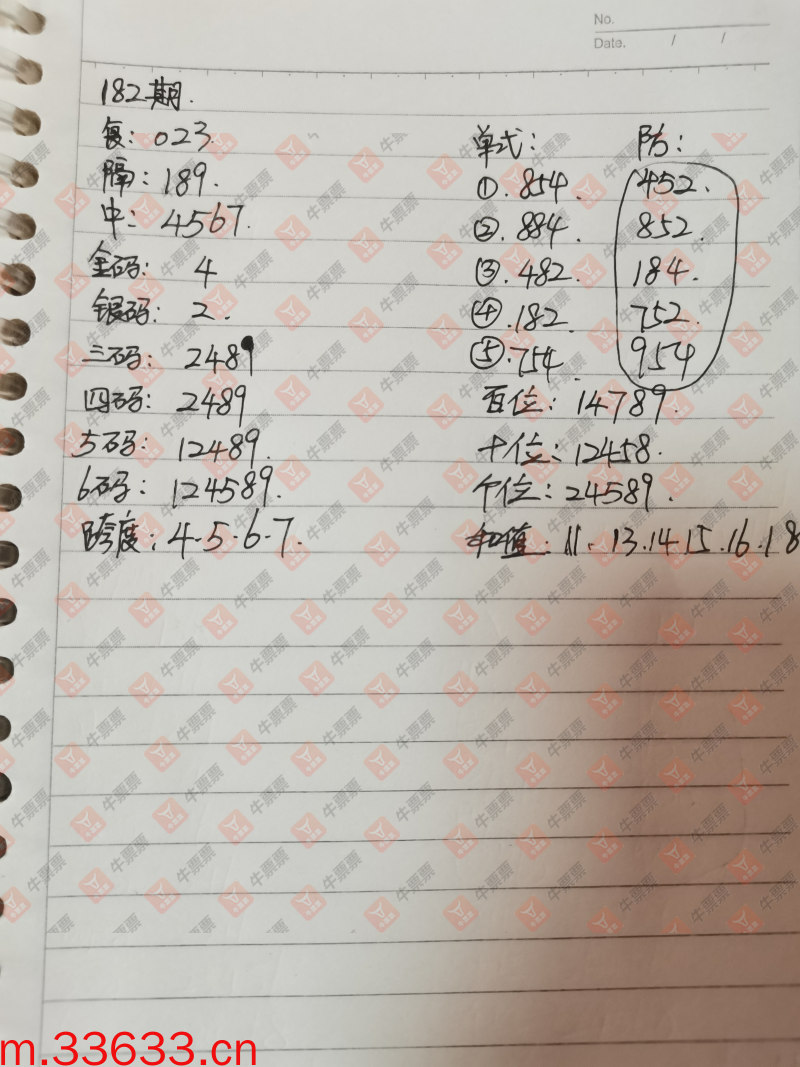 No.
Date. / /
182期.
复: 023.
隔: 189.
中: 4567.
金码: 4
银码: 2.
三码: 2489
四码: 2489
5码: 12489.
6码: 124589.
跨度: 4.5.6.7.
单式: 防:
①. 854. 452.
②. 884. 852.
③. 482. 184.
④. 182. 752.
⑤. 754. 954
百位: 14789.
十位: 12458.
个位: 24589.
和值: 11. 13.14.15.16.18
牛票票
m.33633.cn